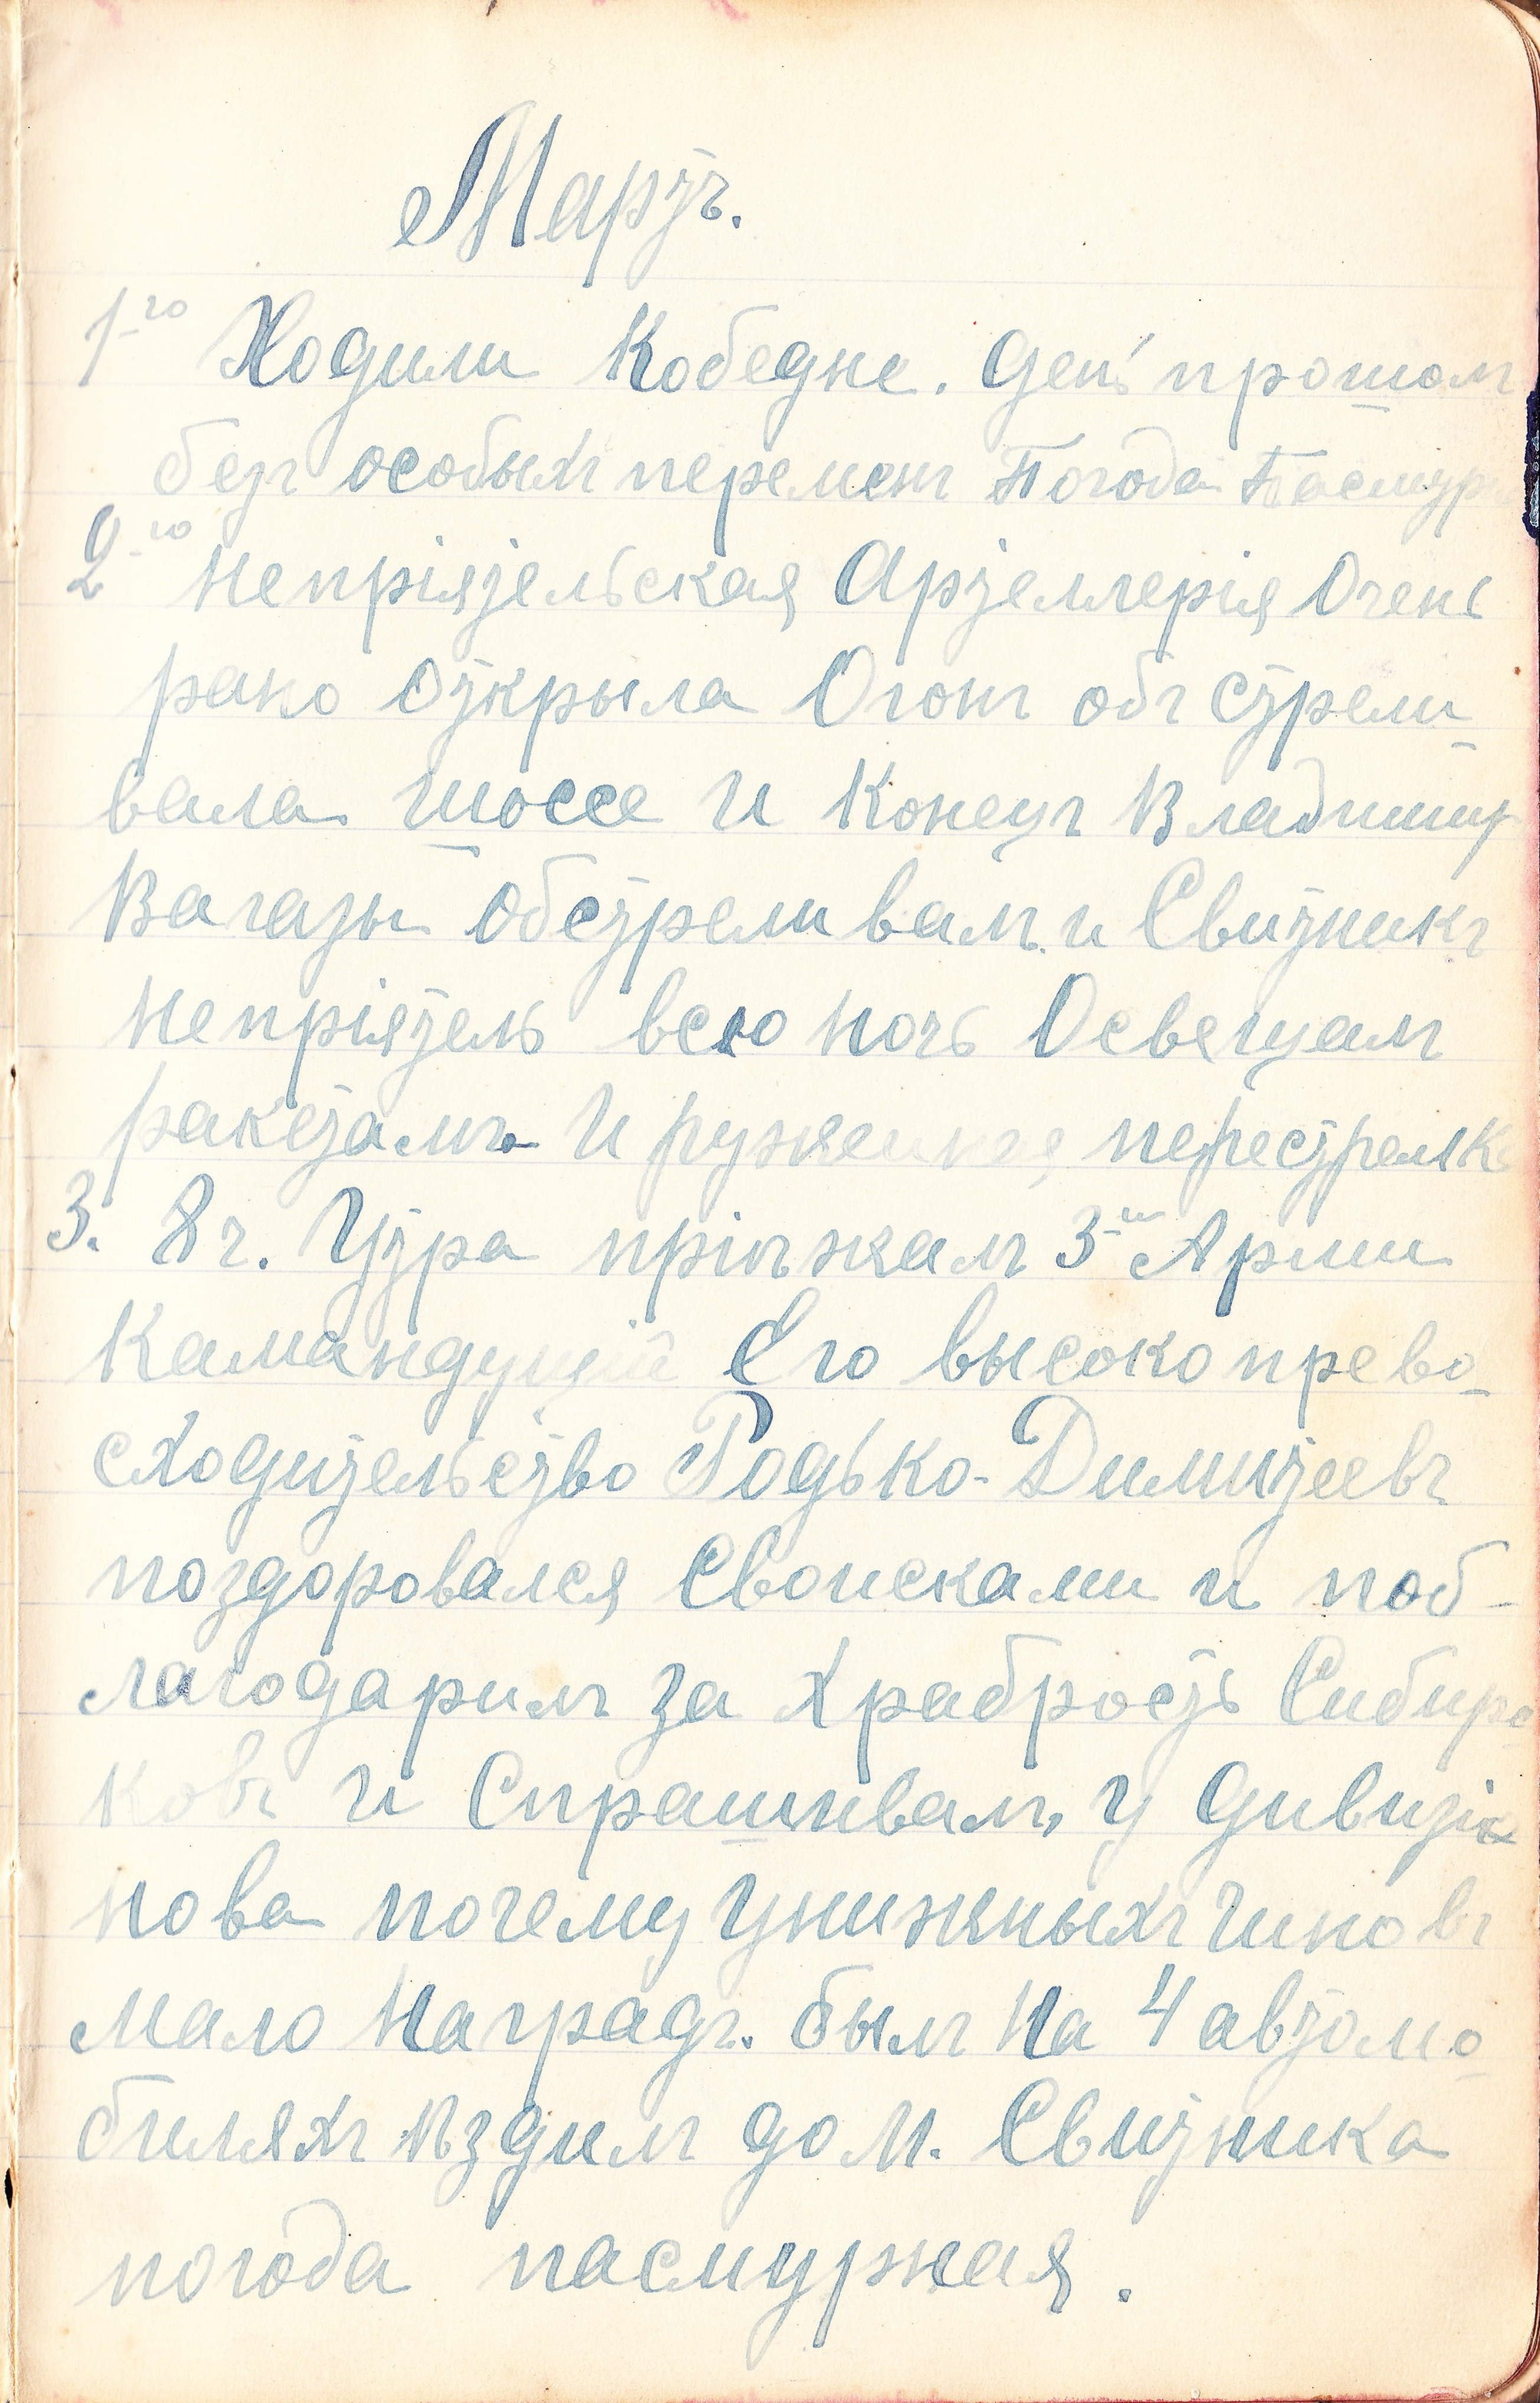 Мартъ.
1-го Ходили Кобедне. День прошолъ
безъ особыхъ переменъ Погода Пасмурн
2-го Непріятельская Артеллерія Очень
рано Открыла Огонъ объ Стрели
вала шоссе и Конецъ Владимир
Вагазы Обстреливалъ и Свитникъ
Непріятель всю Ночь Освещалъ
ракетамъ И руженная перестрелка
3. 8 ч. Утра пріѣжалъ 3-й Арміи
Камандущій Его высоко прево
сходительство Родько-Димитеевъ
поздоровался Свойсками и поб-
лагодарилъ за Храбрость Сибиря
ковъ и Спрашивалъ, у Дивизіо
нова почему Унижныхъ Чиновъ
Мало Наградъ. былъ На 4 автомо
биляхъ ѣздилъ до м. Свитника
погода пасмурная.